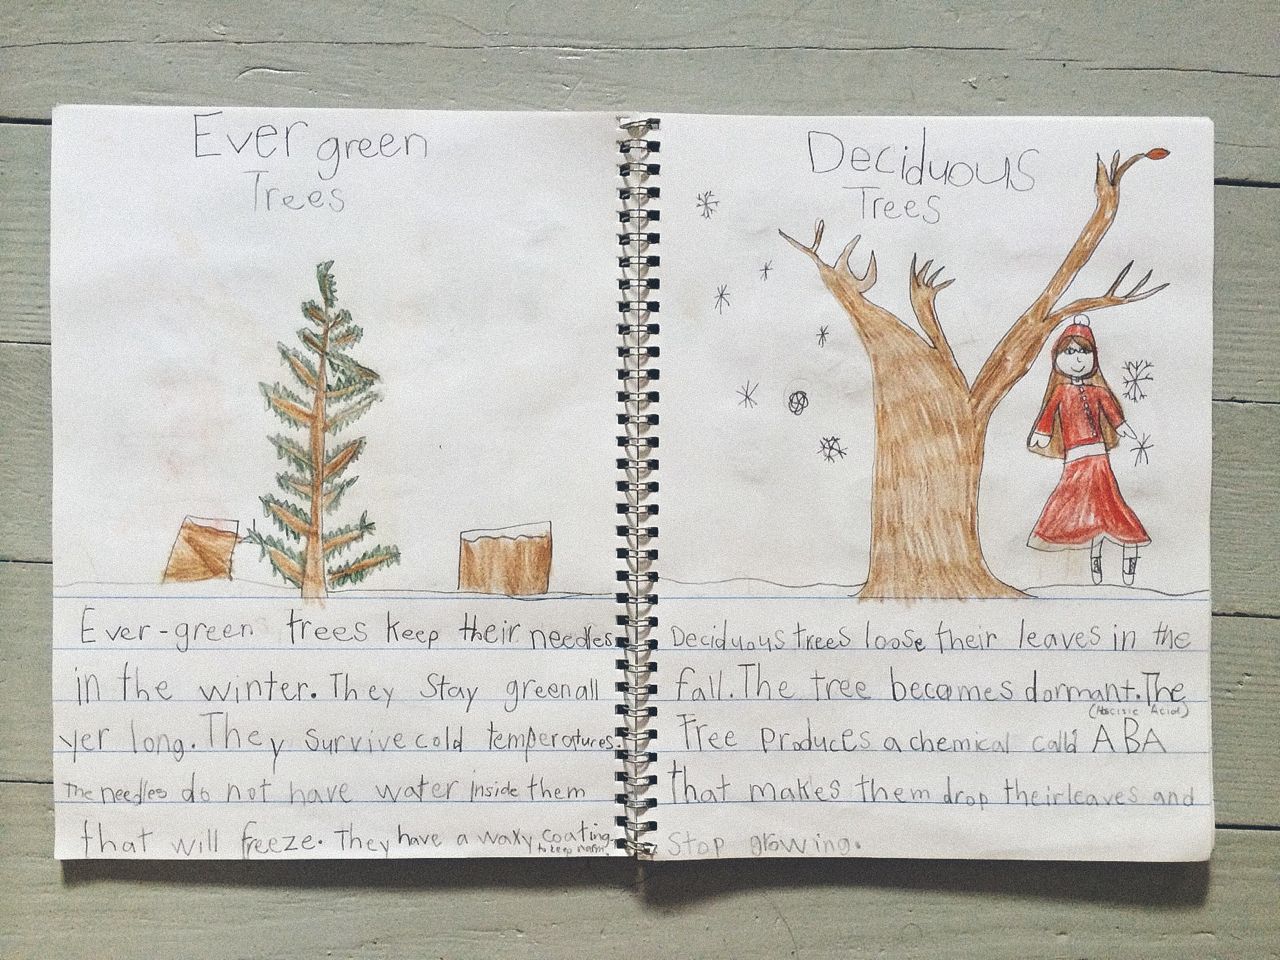 Ever green
Trees
Ever-green trees keep their needles
in the winter. They Stay green all
yer long. They survive cold temperatures.
The needles do not have water inside them
that will freeze. They have a waxy coating
to keep warm.
Deciduous
Trees
Deciduous trees loose their leaves in the
fall. The tree becomes dormant. The
(Abscisic Acid)
Tree produces a chemical calld ABA
that makes them drop their leaves and
Stop growing.